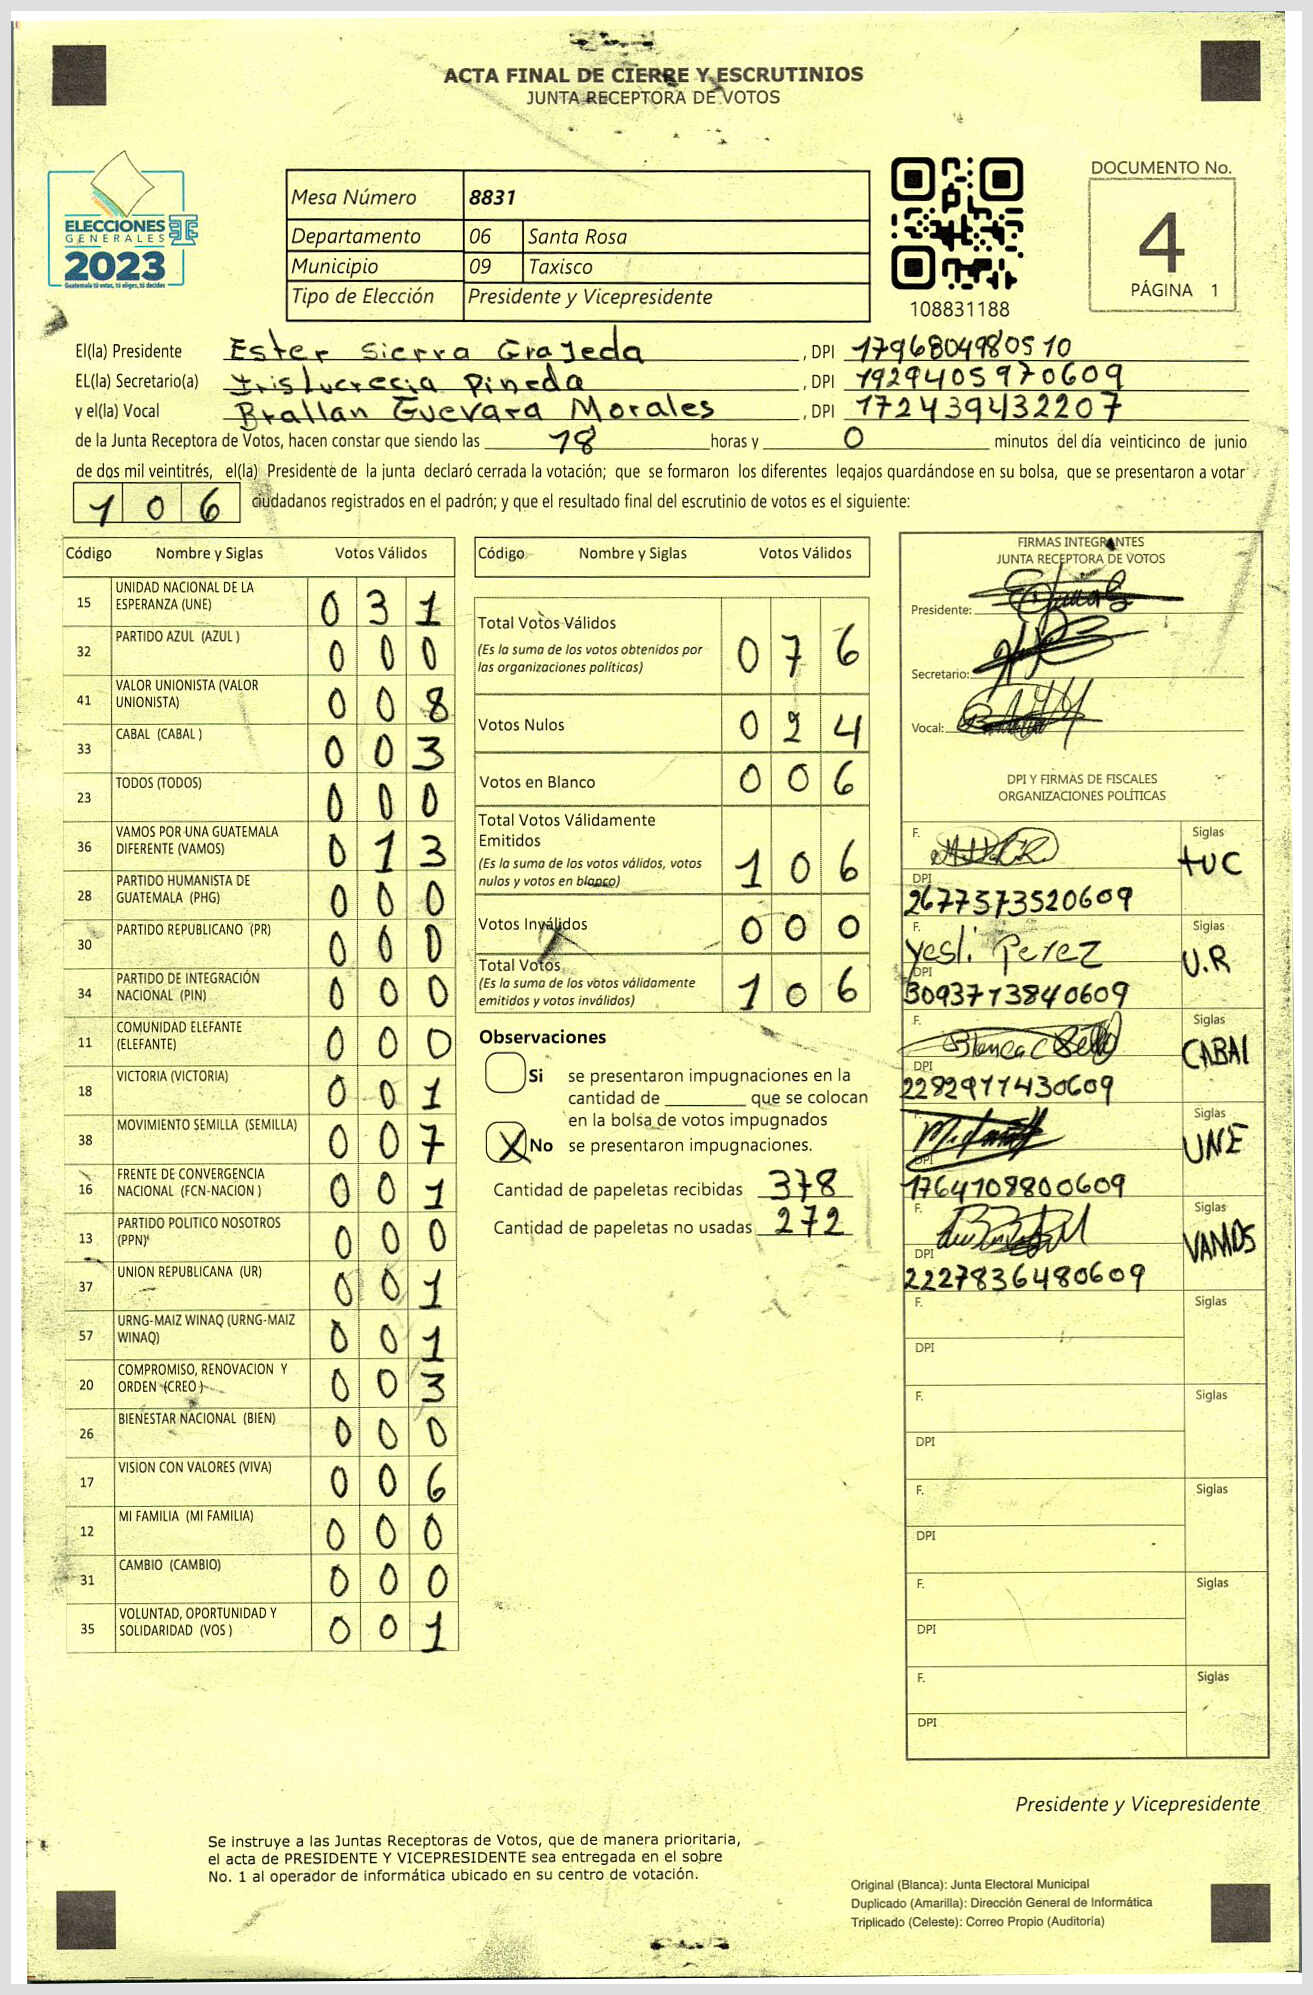 ACTA FINAL DE CIERRE Y ESCRUTINIOS
JUNTA RECEPTORA DE VOTOS
ELECCIONES
GENERALES
2023
Guatemala tú votas, tú eliges, tú decides
Mesa Número 8831
Departamento 06 Santa Rosa
Municipio 09 Taxisco
Tipo de Elección Presidente y Vicepresidente
108831188
DOCUMENTO No.
4
PÁGINA 1
El(la) Presidente Ester Sierra Grajeda, DPI 1796804980510
EL(la) Secretario(a) Irislucrecia Pineda, DPI 1929405970609
y el(la) Vocal Brallan Guevara Morales, DPI 1724394432207
de la Junta Receptora de Votos, hacen constar que siendo las 18 horas y 0 minutos del día veinticinco de junio
de dos mil veintitrés, el(la) Presidente de la junta declaró cerrada la votación; que se formaron los diferentes legajos quardándose en su bolsa, que se presentaron a votar
106 ciudadanos registrados en el padrón; y que el resultado final del escrutinio de votos es el siguiente:
Código Nombre y Siglas Votos Válidos
15 UNIDAD NACIONAL DE LA ESPERANZA (UNE) 0 3 1
32 PARTIDO AZUL (AZUL ) 0 0 0
41 VALOR UNIONISTA (VALOR UNIONISTA) 0 0 8
33 CABAL (CABAL ) 0 0 3
23 TODOS (TODOS) 0 0 0
36 VAMOS POR UNA GUATEMALA DIFERENTE (VAMOS) 0 1 3
28 PARTIDO HUMANISTA DE GUATEMALA (PHG) 0 0 0
30 PARTIDO REPUBLICANO (PR) 0 0 0
34 PARTIDO DE INTEGRACIÓN NACIONAL (PIN) 0 0 0
11 COMUNIDAD ELEFANTE (ELEFANTE) 0 0 0
18 VICTORIA (VICTORIA) 0 0 1
38 MOVIMIENTO SEMILLA (SEMILLA) 0 0 7
16 FRENTE DE CONVERGENCIA NACIONAL (FCN-NACION ) 0 0 1
13 PARTIDO POLITICO NOSOTROS (PPN) 0 0 0
37 UNION REPUBLICANA (UR) 0 0 1
57 URNG-MAIZ WINAQ (URNG-MAIZ WINAQ) 0 0 1
20 COMPROMISO, RENOVACION Y ORDEN (CREO ) 0 0 3
26 BIENESTAR NACIONAL (BIEN) 0 0 0
17 VISION CON VALORES (VIVA) 0 0 6
12 MI FAMILIA (MI FAMILIA) 0 0 0
31 CAMBIO (CAMBIO) 0 0 0
35 VOLUNTAD, OPORTUNIDAD Y SOLIDARIDAD (VOS ) 0 0 1
Código Nombre y Siglas Votos Válidos
Total Votos Válidos 0 7 6
(Es la suma de los votos obtenidos por
las organizaciones políticas)
Votos Nulos 0 2 4
Votos en Blanco 0 0 6
Total Votos Válidamente
Emitidos 1 0 6
(Es la suma de los votos válidos, votos
nulos y votos en blanco)
Votos Inválidos 0 0 0
Total Votos 1 0 6
(Es la suma de los votos válidamente
emitidos y votos inválidos)
Observaciones
Si se presentaron impugnaciones en la
cantidad de ________ que se colocan
en la bolsa de votos impugnados
X No se presentaron impugnaciones.
Cantidad de papeletas recibidas 378
Cantidad de papeletas no usadas 272
FIRMAS INTEGRANTES
JUNTA RECEPTORA DE VOTOS
Presidente:
Secretario:
Vocal:
DPI Y FIRMAS DE FISCALES
ORGANIZACIONES POLÍTICAS
F. Siglas TUC
DPI 2677573520609
F. Yesli Perez Siglas U.R
DPI 3093713840609
F. Siglas CABAL
DPI 2282911430609
F. Siglas UNE
DPI 1764108800609
F. Siglas VAMOS
DPI 2227836480609
F. Siglas
DPI
F. Siglas
DPI
F. Siglas
DPI
F. Siglas
DPI
F. Siglas
DPI
Presidente y Vicepresidente
Se instruye a las Juntas Receptoras de Votos, que de manera prioritaria,
el acta de PRESIDENTE Y VICEPRESIDENTE sea entregada en el sobre
No. 1 al operador de informática ubicado en su centro de votación.
Original (Blanca): Junta Electoral Municipal
Duplicado (Amarilla): Dirección General de Informática
Triplicado (Celeste): Correo Propio (Auditoría)